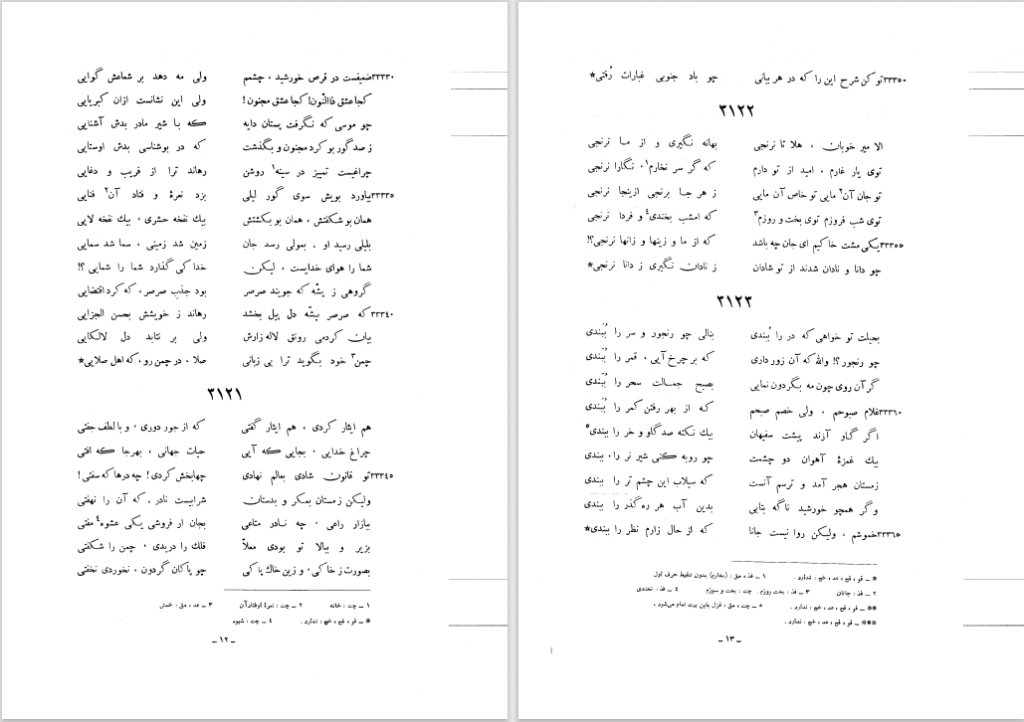 ۳۳۳۳۰ ضعیفست در قرص خورشید ، چشمم ولی مه دهد بر شعاعش گوایی
کجا عشق ذاالنّون! کجا عشق مجنون! ولی این نشانست ازان کبریایی
چو موسی که نگرفت پستان دایه که با شیر مادر بدش آشنایی
ز صد گور بو کرد مجنون و بگذشت که در بوشناسی بدش اوستایی
چراغیست تمییز در سینه۱ روشن رهاند ترا از فریب و دغایی
۳۳۳۳۵ بیاورد بویش سوی گور لیلی بزد نعرهٔ و فتاد آن۲ فنایی
همان بو شکفتش ، همان بو بکشتش بیك نفخه حشری ، بیك نفخه لایی
بلیلی رسید او . بمولی رسد جان زمین شد زمینی ، سما شد سمایی
شما را هوای خدایست ، لیکن خدا کی گذارد شما را شمایی ؟!
گروهی ز پشّه که جویند صرصر بود جذب صرصر ، که کرد اقتضایی
۳۳۳۴۰ که صرصر بپشّه دل پیل بخشد رهاند ز خویشش بحسن الجزایی
بیان کردمی رونق لاله زارش ولی بر نتابد دل لالکایی
چمن۳ خود بگوید ترا بی زبانی صلا ، در چمن رو ، که اهل صلایی*
۳۱۲۱
هم ایثار کردی ، هم ایثار گفتی که از جور دوری ، و با لطف جفتی
چراغ خدایی ، بجایی که آیی حیات جهانی ، بهرجا که افتی
۳۳۳۴۵ تو قانون شادی بعالم نهادی چها بخش کردی! چه درها که سفتی!
ولیکن ز مستان بمکر و بدستان شرابیست نادر ، که آن را نهفتی
ببازار راعی ، چه نادر متاعی بجان ار فروشی یکی عشوه۴ مفتی
بزیر و ببالا تو بودی معلّا فلك را دریدی ، چمن را شکفتی
بصورت ز خاکی ، و زین خاك پاکی چو پاکان گردون ، نخوردی نخفتی
۱ ــ چت : خانه ۲ ــ چت : نعرهٔ اوفتاد آن ۳ ــ عد ، مق : خمش
* ــ قو ، قح ، خج : ندارد . ۴ ــ چت : شیوه
ــ ۱۲ ــ
۳۳۳۵۰ تو کن شرح این را که در هر بیانی چو باد جنوبی غبارات رُفتی*
۳۱۲۲
الا میر خوبان ، هلا تا نرنجی بهانه نگیری و از ما نرنجی
توی یار غارم ، امید از تو دارم که گر سر نخارم۱ ، نگارا نرنجی
تو جان آن۲ مایی تو خاص آن مایی ز هر جا برنجی ازینجا نرنجی
توی شب فروزم توی بخت و روزم۳ که امشب بخندی۴ و فردا نرنجی
۳۳۳۵۵ یکی مشت خاکیم ای جان چه باشد که از ما و زینها و زانها نرنجی؟!
چو دانا و نادان شدند از تو شادان ز نادان نگیری ز دانا نرنجی*
۳۱۲۳
بحیلت تو خواهی که در را بُبندی بنالی چو رنجور و سر را بُبندی
چو رنجور ؟! والله که آن زور داری که بر چرخ آیی ، قمر را بُبندی
گر آن روی چون مه بگردون نمایی بصبح جمالت سحر را بُبندی
۳۳۳۶۰ غلام صبوحم ، ولی خصم صبحم که از بهر رفتن کمر را بُبندی
اگر گاو آرند پیشت سفیهان بیك نکته صد گاو و خر را ببندی۵
بیك غمزهٔ آهوان دو چشمت چو روبه کنی شیر نر را ، ببندی
زمستان هجر آمد و ترسم آنست که سیلاب این چشم تر را ببندی
وگر همچو خورشید ناگه بتابی بدین آب هر رهگذر را ببندی
۳۳۳۶۵ خموشم ، ولیکن روا نیست جانا که از حال زارم نظر را ببندی*
* ــ قو ، قح ، عد ، خج : ندارد . ۱ ــ فذ ، مق : (بخارم) بدون تنقیط حرف اول
۲ ــ فذ : جانان ۳ ــ فذ : بخت روزم . چت : بخت و سوزم ۴ ــ فذ : نخندی
** ــ قو ، قح ، عد ، خج : ندارد . ۵ ــ چت ، مق : غزل باین بیت تمام می‌شود .
*** ــ قو ، قح ، عد ، خج : ندارد .
ــ ۱۳ ــ